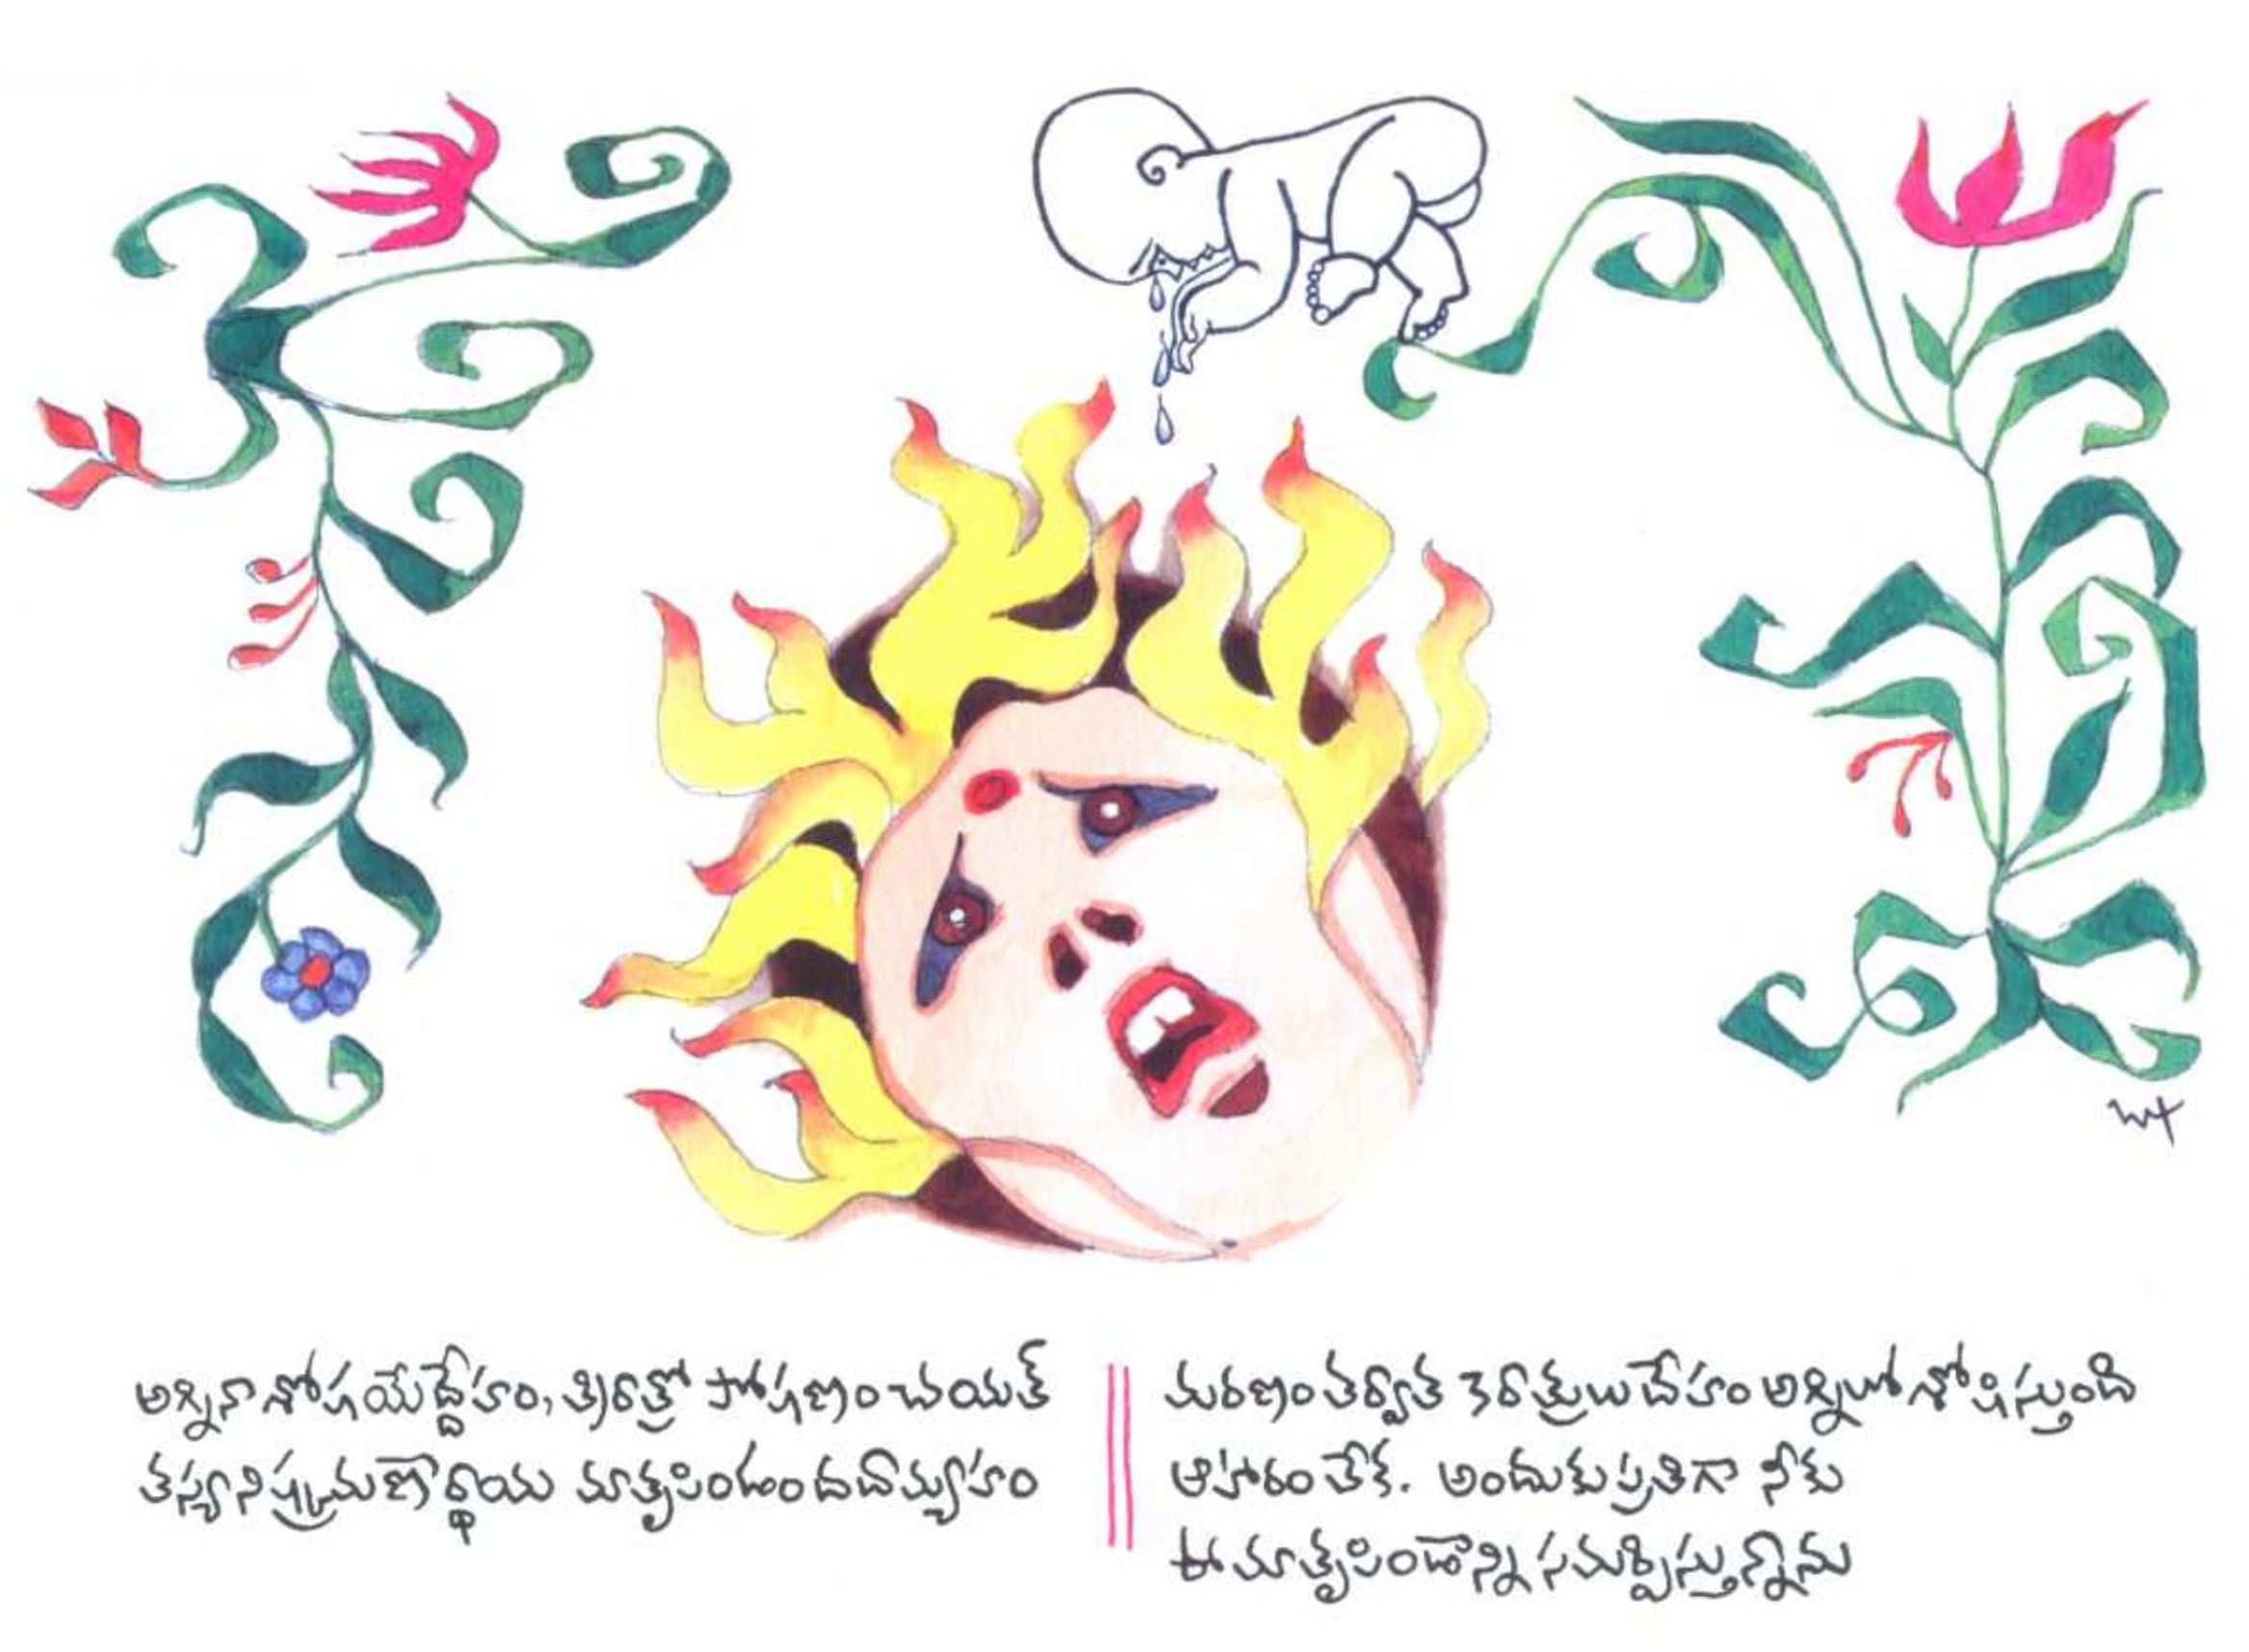 అగ్నినా శోషయేద్దేహం, త్రిరాత్రో పోషణం చయత్
తస్యా నిష్క్రమణార్థాయ మాతృపిండం దదామ్యహం
మరణం తర్వాత 3 రాత్రులు దేహం అగ్నిలో శోషిస్తుంది
ఆహారం లేక. అందుకు ప్రతిగా నీకు
ఈ మాతృపిండాన్ని సమర్పిస్తున్నాను